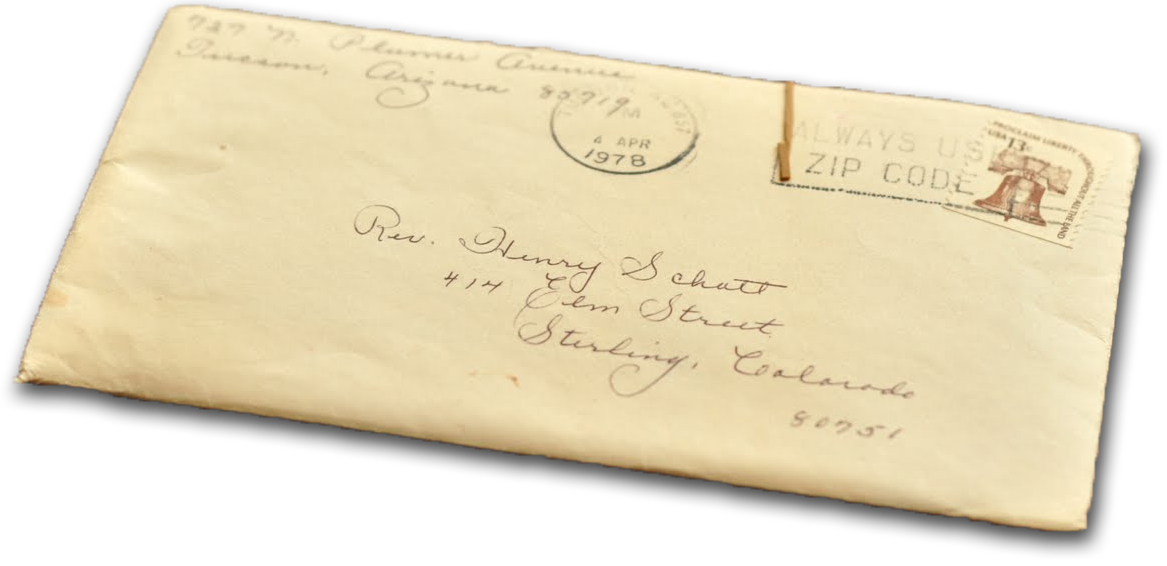 727 N. Plumer Avenue
Tucson, Arizona 85719
PM
4 APR
1978
ALWAYS USE
ZIP CODE
PROCLAIM LIBERTY THROUGHOUT ALL THE LAND
USA 13c
Rev. Henry Schatt
414 Elm Street
Sterling, Colorado
80751